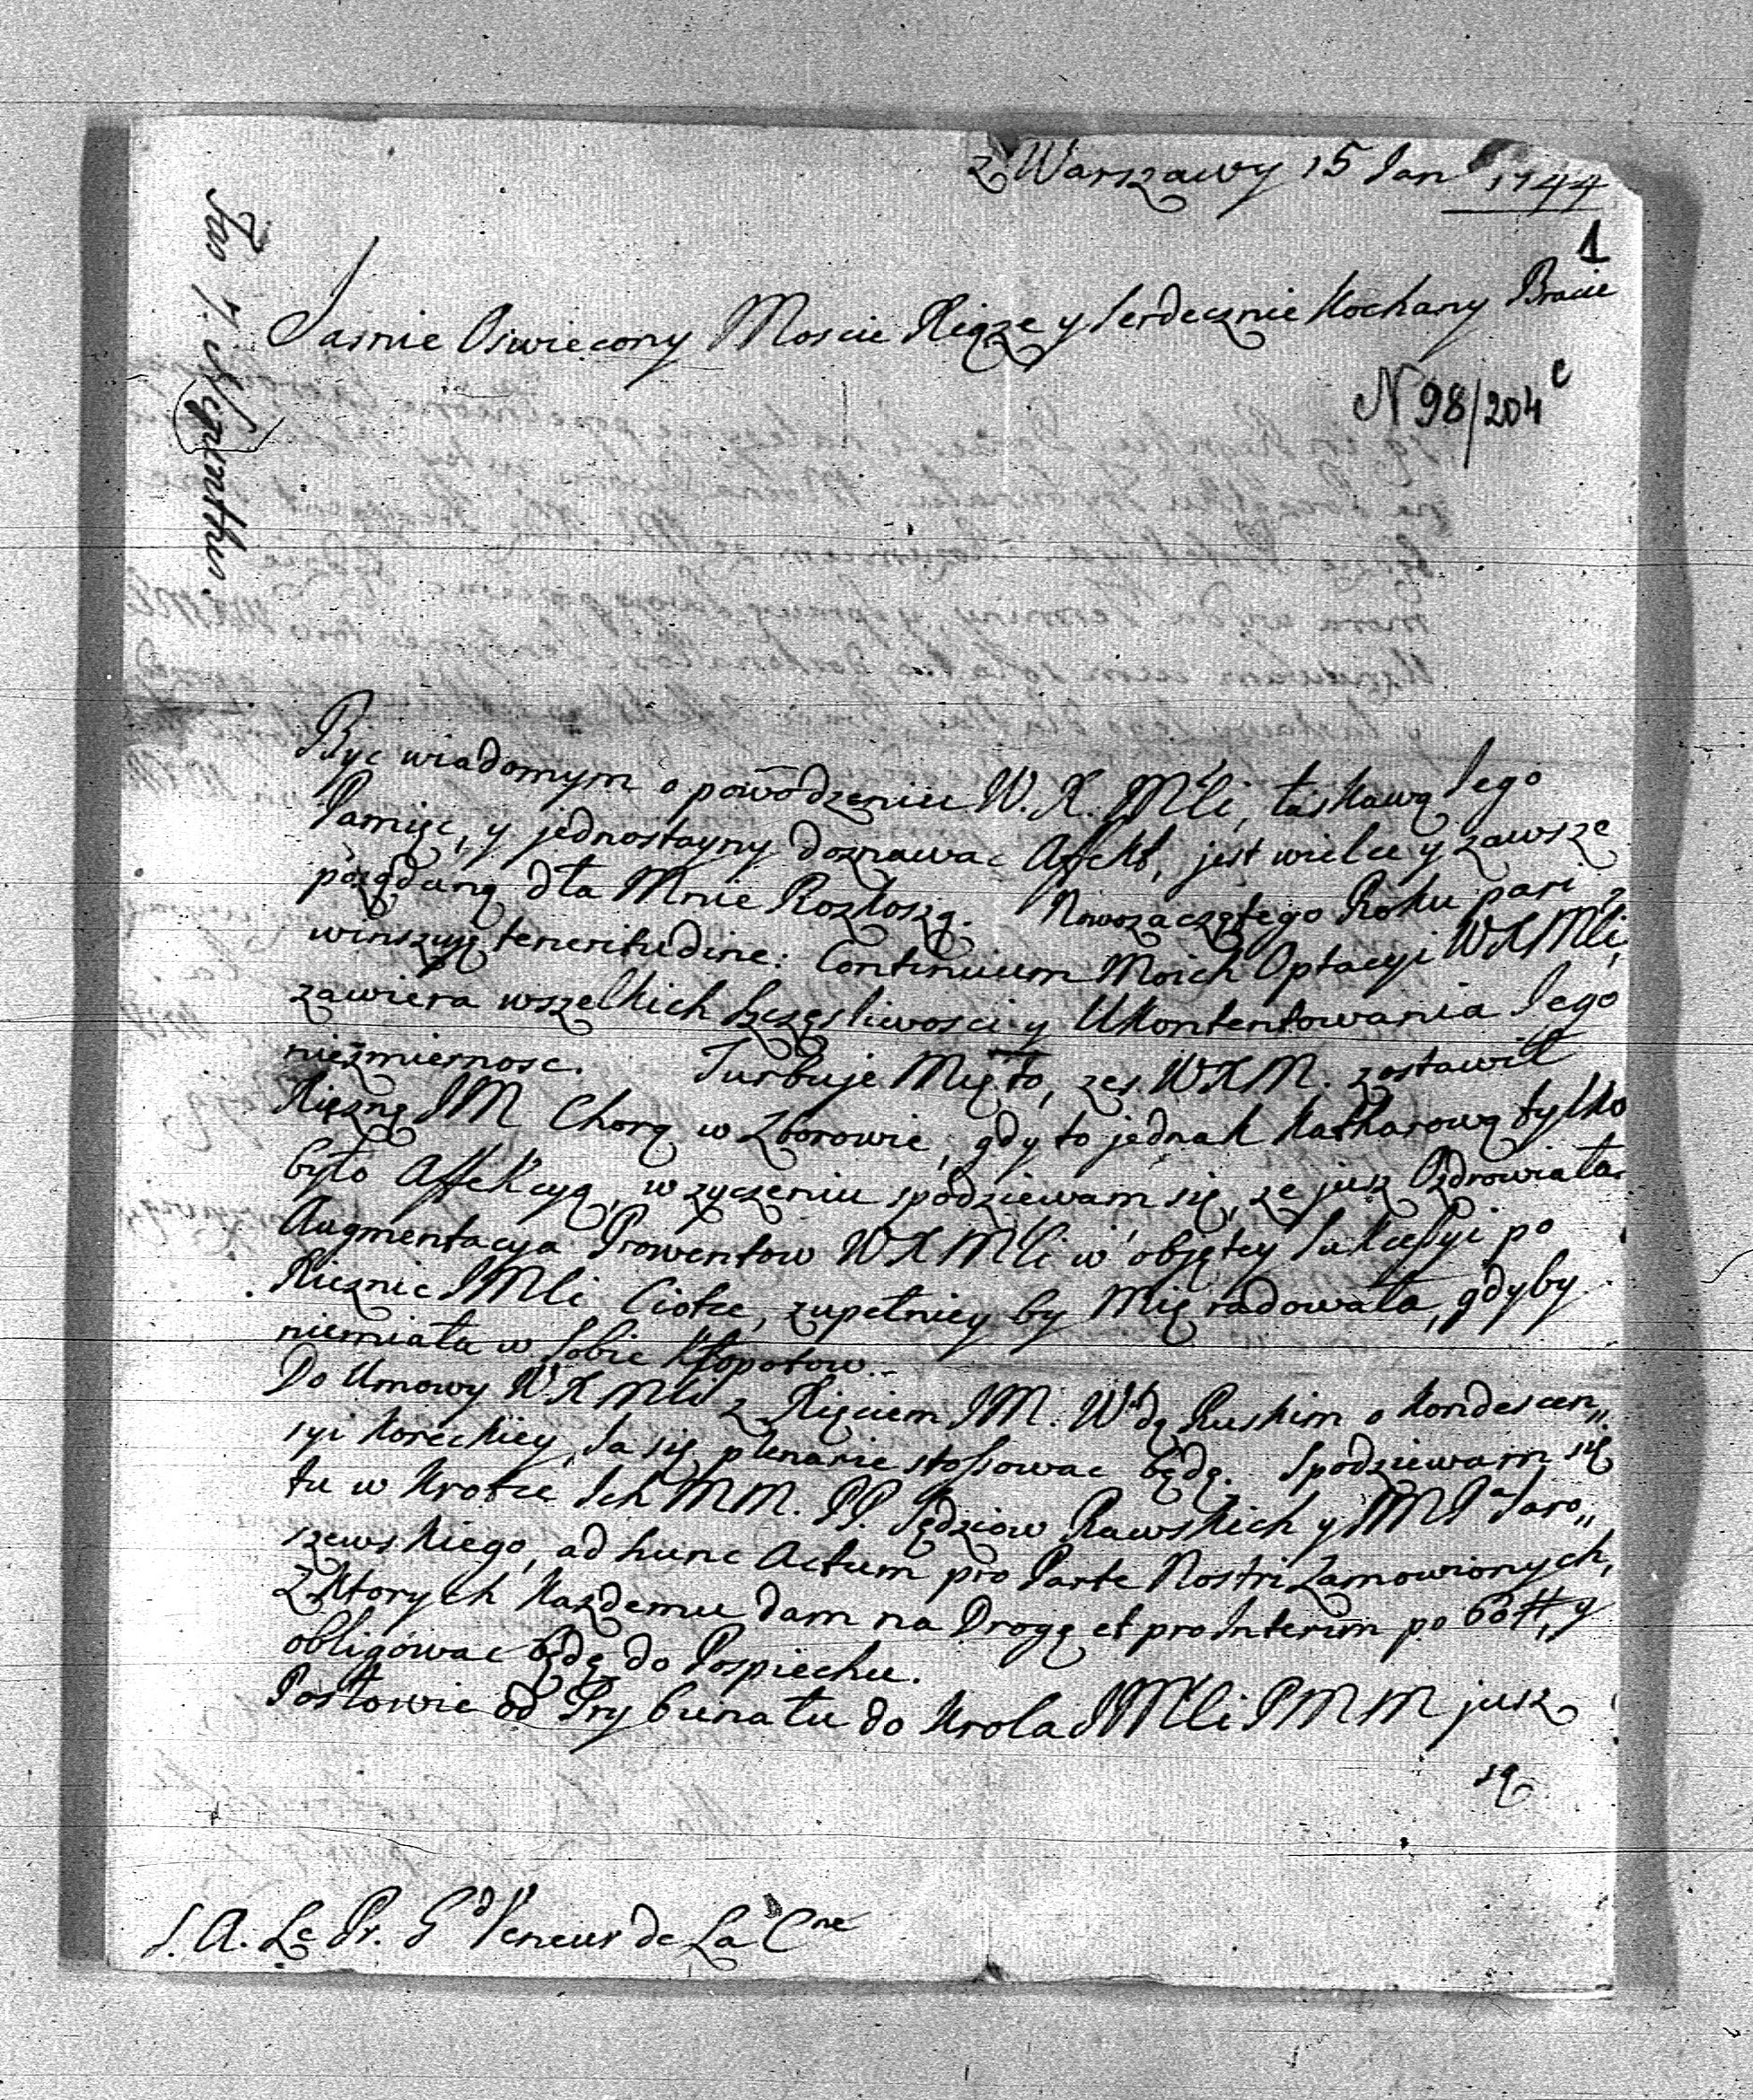 z Warszawy 15 Jan 1744
1
Jasnie Oswiecony Moscie Xiąze y serdecznie Kochany Bracie
N 98/204
Byc wiadomym o powodzeniu W. X. Mci, łaskawą Jego
Pamięc, y jednostayny doznawac Affekt, jest wielce y zawsze
pożądaną dla Mnie Rozkoszą. Nowozaczętego Roku pari
winszuję teneritudine: Continuum Moich Optacyi WXMci,
zawiera wszelkich szczęsliwosci y Ukontentowania Jego
niezmiernosc. Turbuje Mię to, zes WXM. zostawił
Xięznę JM Chorą w Zborowie, gdy to jednak Katharową tylko
było Affekcyą, w zyczeniu spodziewam się, ze jusz Ozdrowiała.
Augmentacya Prowentow WXMci w objętey Sukcessyi po
Xięznie JMci Ciotce, zupełniey by Mię radowała, gdyby
niemiała w sobie Kłopotow.
Do Umowy WXMci z Xięciem JM. Wdą Ruskim o Kondescen„
syi Koreckiey, Ja się plenarie stosowac będę. Spodziewam się
tu w krotce Ich MM. PP. Sędziow Rawskich y JMPa Jaro„
szewskiego, ad hunc Actum pro Parte Nostri Zamowionych,
z Ktorych Kazdemu dam na Drogę et pro Interim po 60 #, y
obligowac będę do Pospiechu.
Posłowie od Trybunału do Krola JMci PMM jusz
są
S. A. Le Pr. Gd Veneur de La Cne